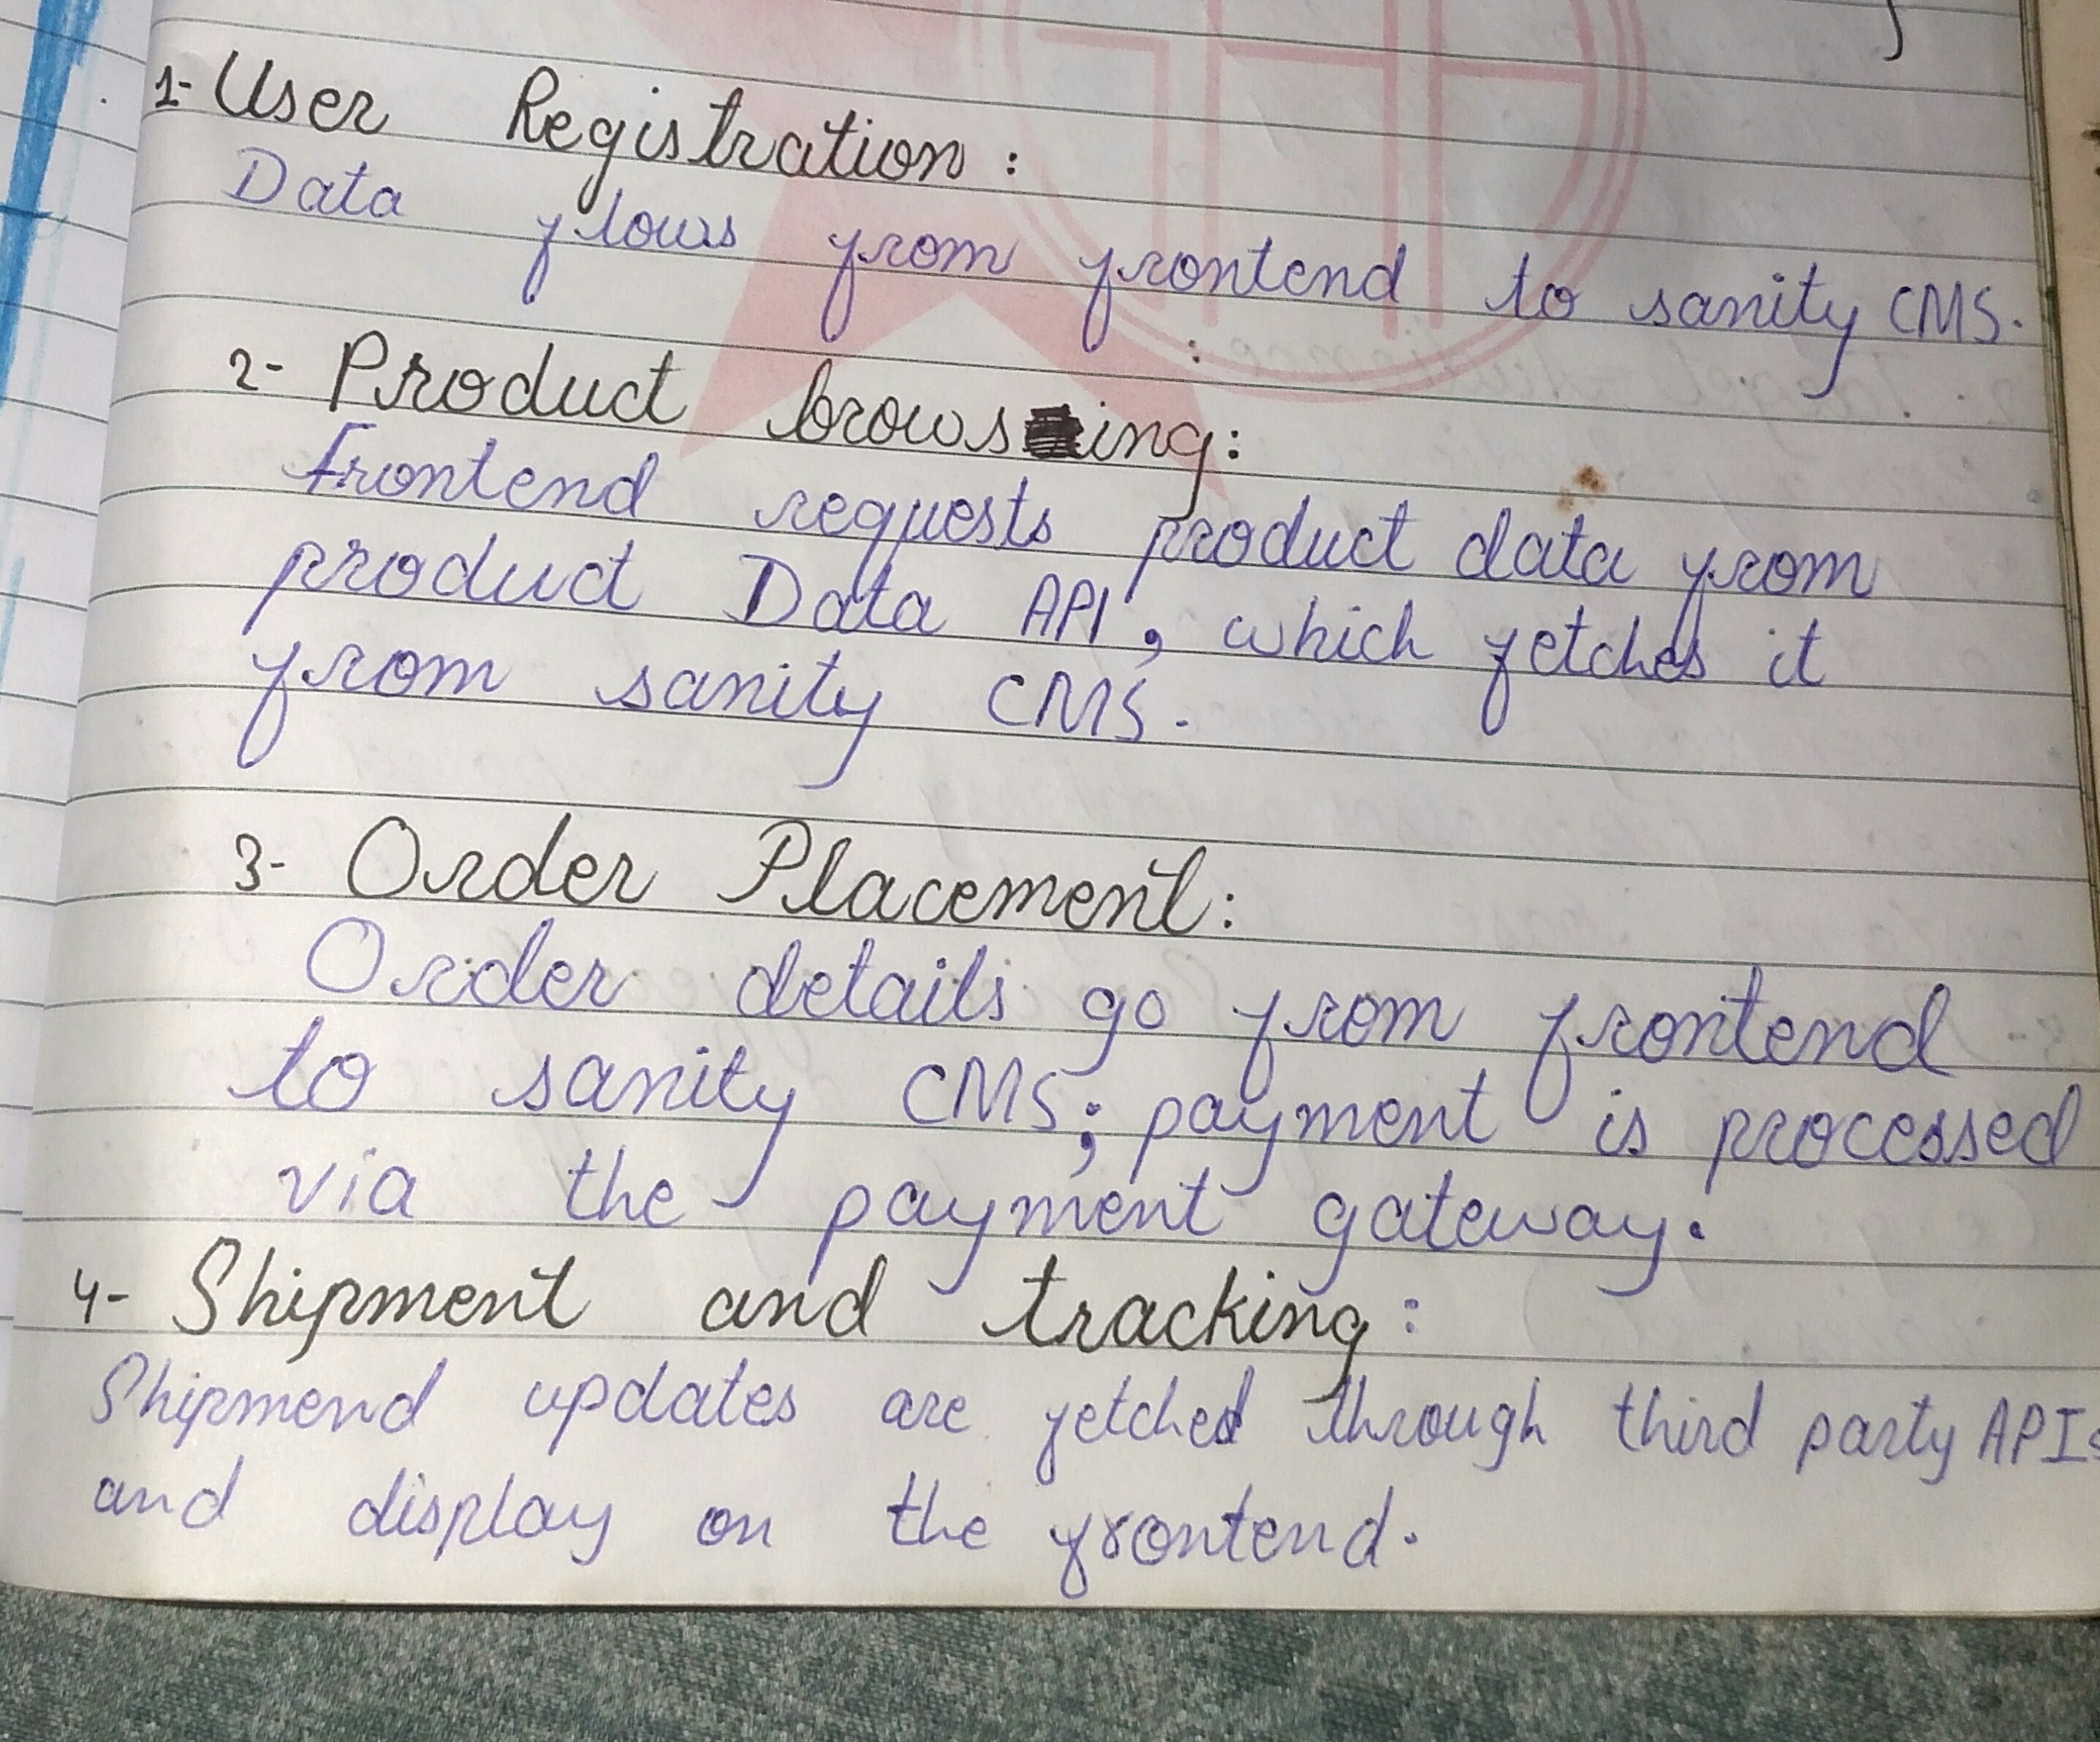 1- User Registration :
Data flows from frontend to sanity CMS.
2- Product browsing:
Frontend requests product data from
product Data API, which fetches it
from sanity CMS.
3- Order Placement:
Order details go from frontend
to sanity CMS; payment is processed
via the payment gateway.
4- Shipment and tracking:
Shipmend updates are fetched through third party APIs
and display on the frontend.